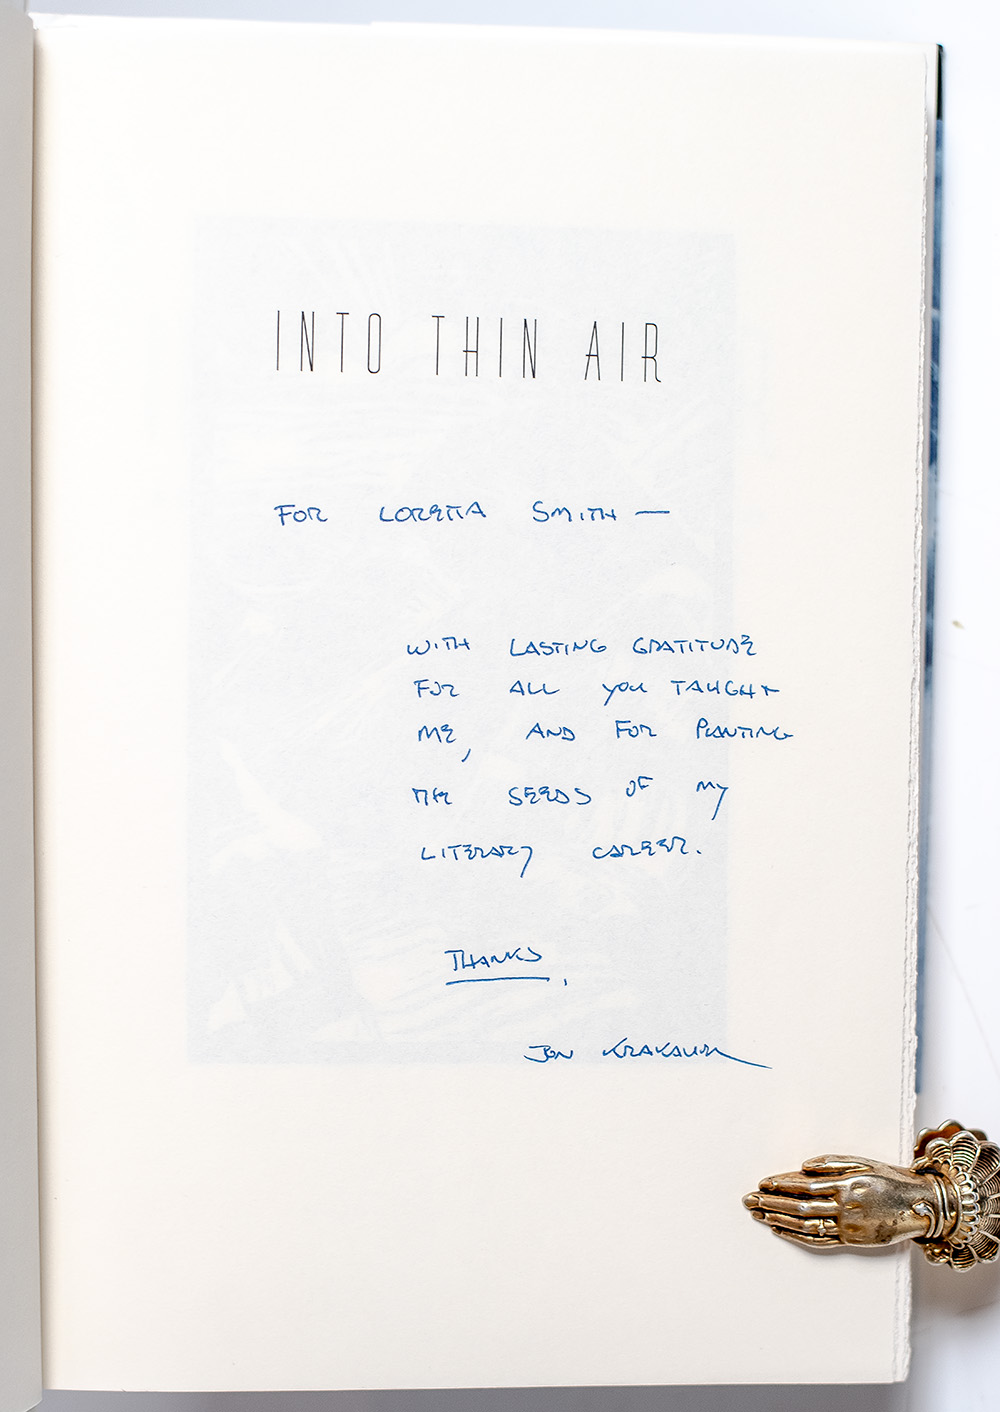 INTO THIN AIR
FOR LORETTA SMITH —
WITH LASTING GRATITUDE
FOR ALL YOU TAUGHT
ME, AND FOR PLANTING
THE SEEDS OF MY
LITERARY CAREER.
THANKS,
JON KRAKAUER